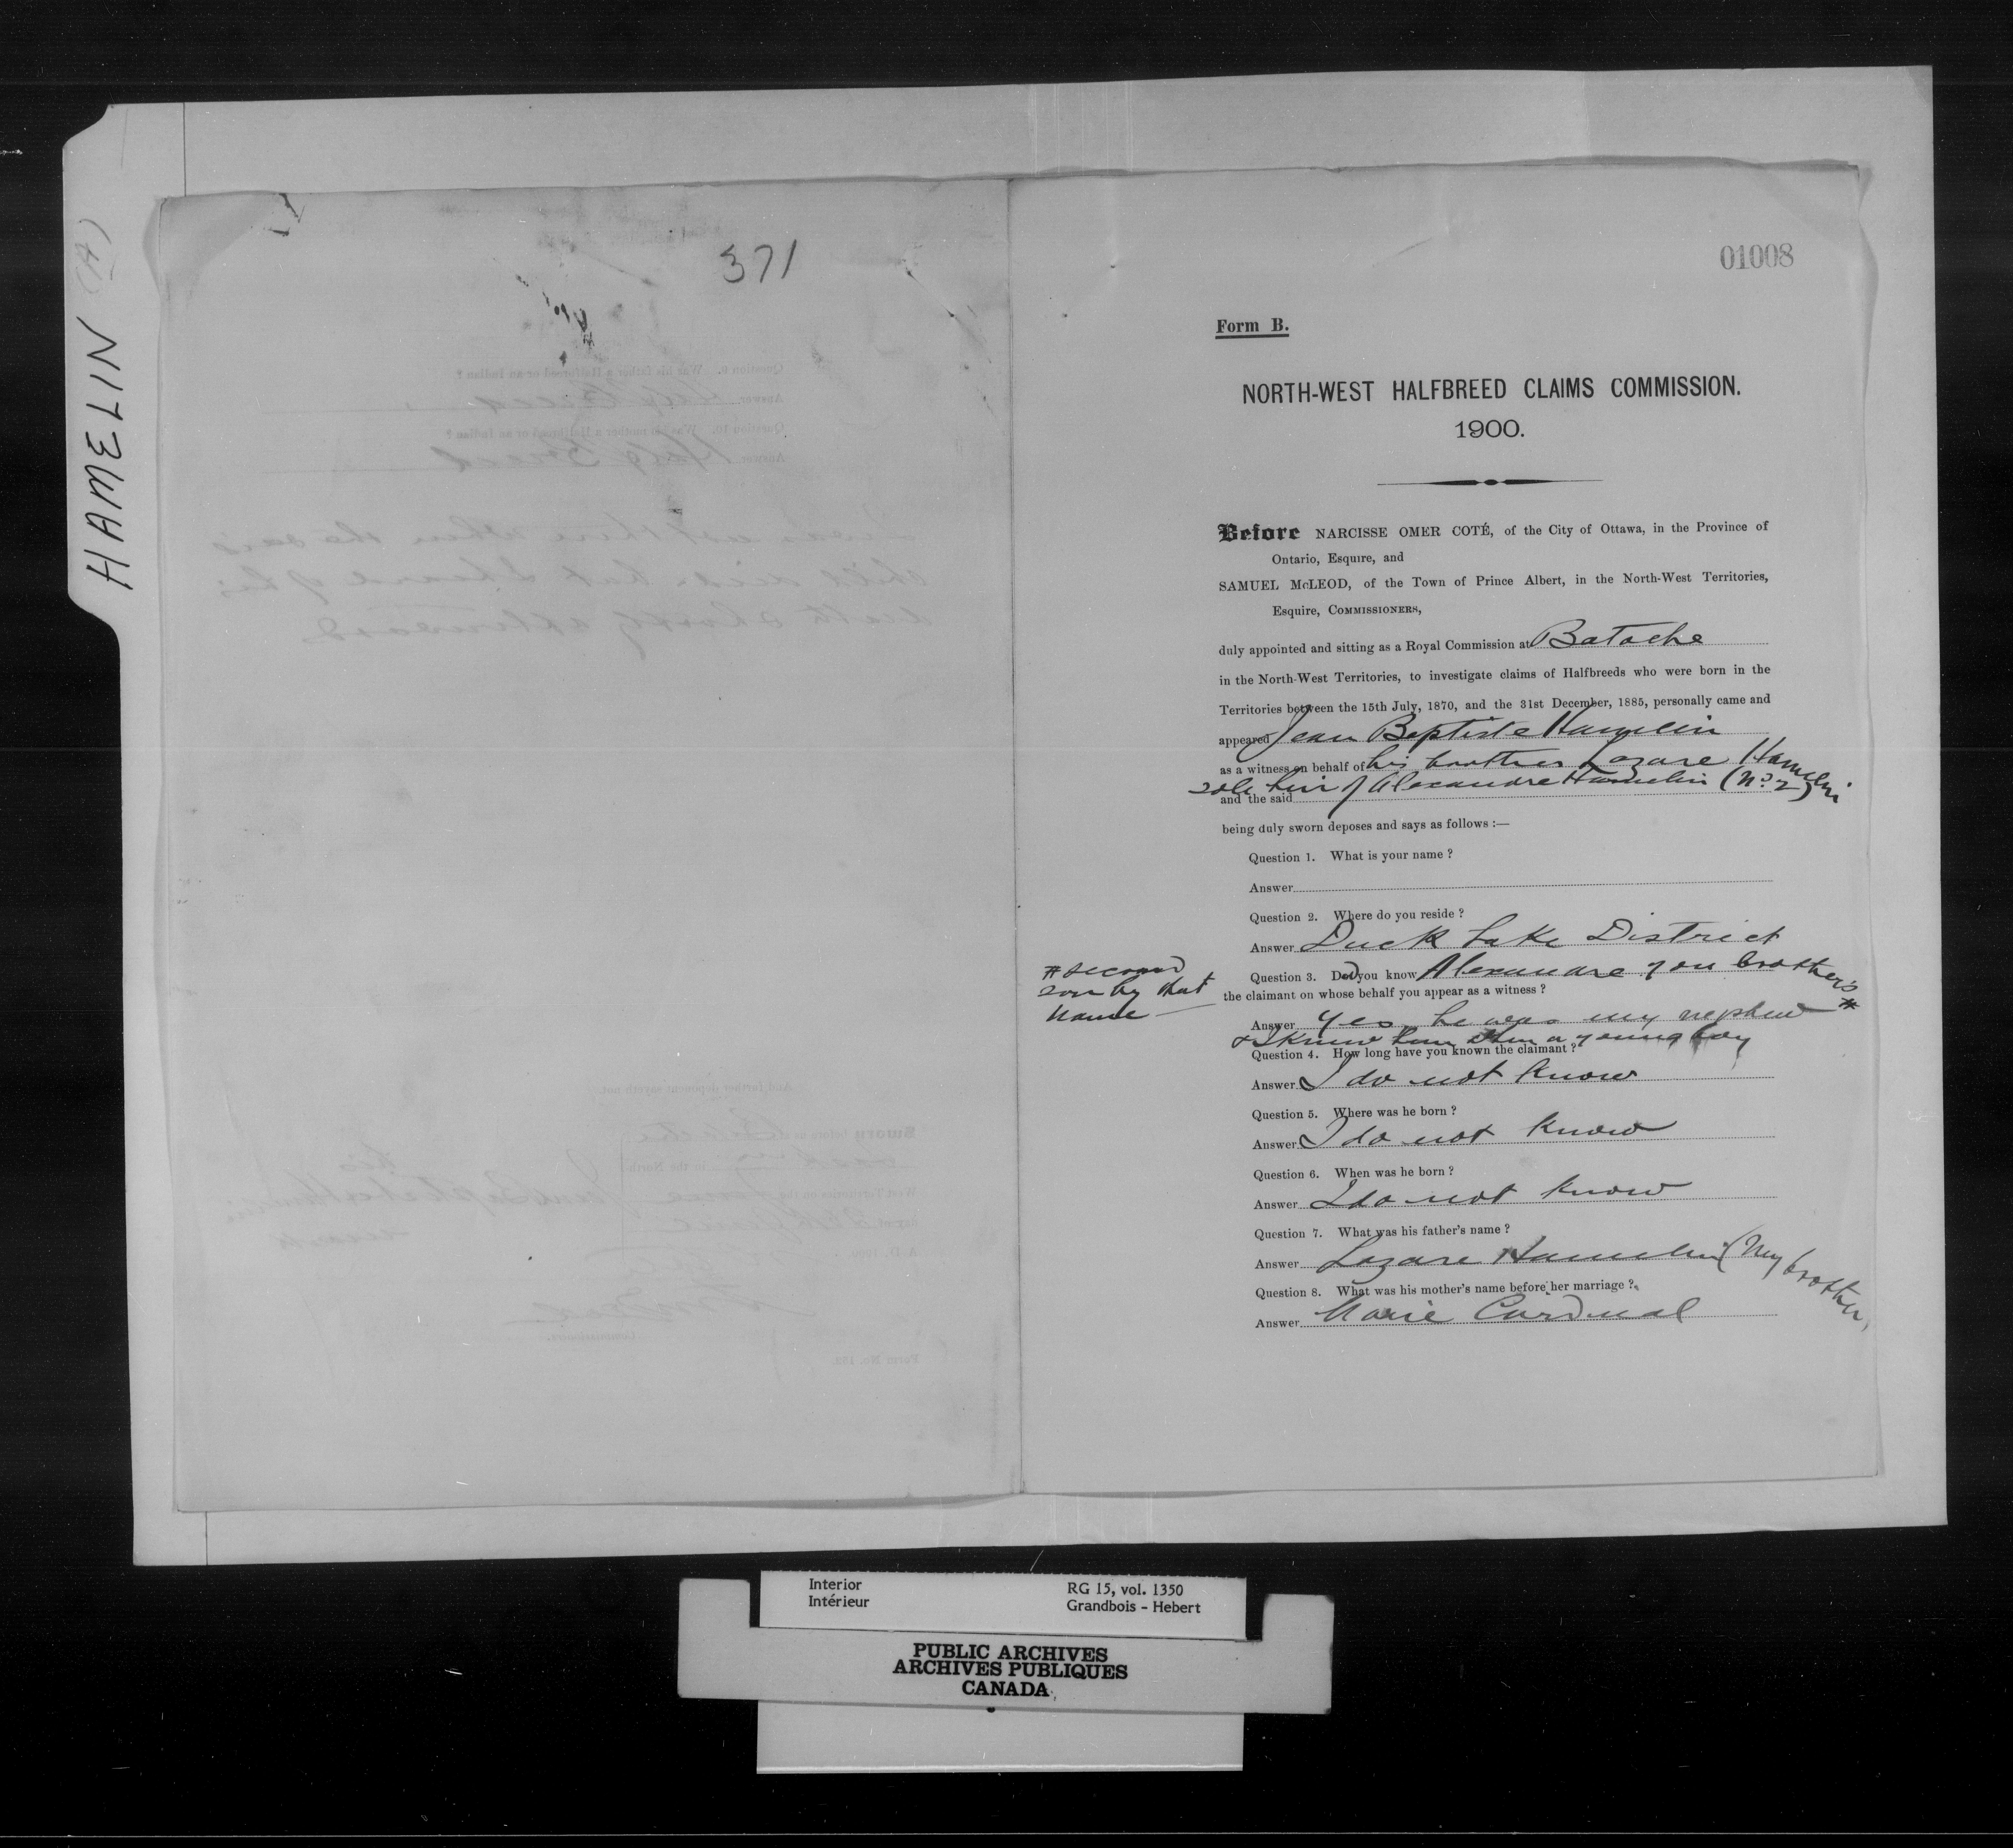 HAMELIN (A)
371
01008
Form B.
NORTH-WEST HALFBREED CLAIMS COMMISSION.
1900.
Before NARCISSE OMER COTÉ, of the City of Ottawa, in the Province of
Ontario, Esquire, and
SAMUEL McLEOD, of the Town of Prince Albert, in the North-West Territories,
Esquire, COMMISSIONERS,
duly appointed and sitting as a Royal Commission at Batoche
in the North-West Territories, to investigate claims of Halfbreeds who were born in the
Territories between the 15th July, 1870, and the 31st December, 1885, personally came and
appeared Jean Baptiste Hamelin
as a witness on behalf of his brother Lazare Hamelin
sole heir of Alexandre Hamelin (No. 2)
and the said
being duly sworn deposes and says as follows :—
Question 1. What is your name ?
Answer
Question 2. Where do you reside ?
Answer Duck Lake District
Question 3. Did you know Alexandre you brother's #
# second
son by that
name —
the claimant on whose behalf you appear as a witness ?
Answer Yes, he was my nephew
& I knew him when a young boy
Question 4. How long have you known the claimant ?
Answer I do not know
Question 5. Where was he born ?
Answer I do not know
Question 6. When was he born ?
Answer I do not know
Question 7. What was his father's name ?
Answer Lazare Hamelin (My brother)
Question 8. What was his mother's name before her marriage ?
Answer Marie Cardinal
Interior
Intérieur
RG 15, vol. 1350
Grandbois - Hebert
PUBLIC ARCHIVES
ARCHIVES PUBLIQUES
CANADA